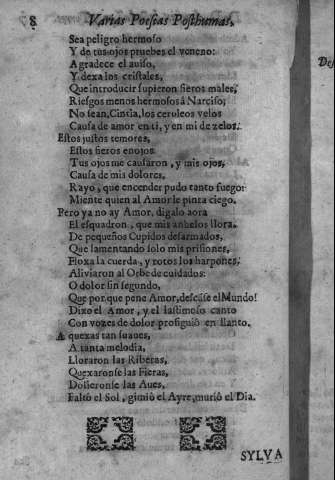 8 Varias Poesias Posthumas,
Sea peligro hermoso
Y de tus ojos pruebes el veneno:
Agradece el auiso,
Y dexa los cristales,
Que introducir supieron fieros males,
Riesgos menos hermosos á Narciso;
No sean, Cintia, los ceruleos velos
Causa de amor en ti, y en mi de zelos.
Estos justos temores,
Estos fieros enojos
Tus ojos me causaron, y mis ojos,
Causa de mis dolores,
Rayo, que encender pudo tanto fuego:
Miente quien al Amor le pinta ciego.
Pero ya no ay Amor, digalo aora
El esquadron, que mis anhelos llora,
De pequeños Cupidos desarmados,
Que lamentando solo mis prisiones,
Floxa la cuerda, y rotos los harpones,
Aliviaron al Orbe de cuidados:
O dolor sin segundo,
Que por que pene Amor, descāse el Mundo!
Dixo el Amor, y el lastimoso canto
Con vozes de dolor prosiguiò en llanto.
A quexas tan suaues,
A tanta melodia,
Lloraron las Riberas,
Quexaronse las Fieras,
Dolieronse las Aues,
Faltó el Sol, gimió el Ayre, murió el Dia.
SYLVA